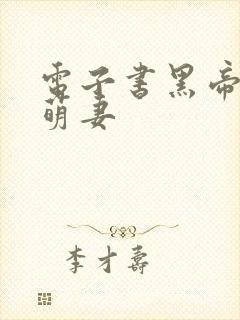 電子書黑帝
萌妻
李才壽